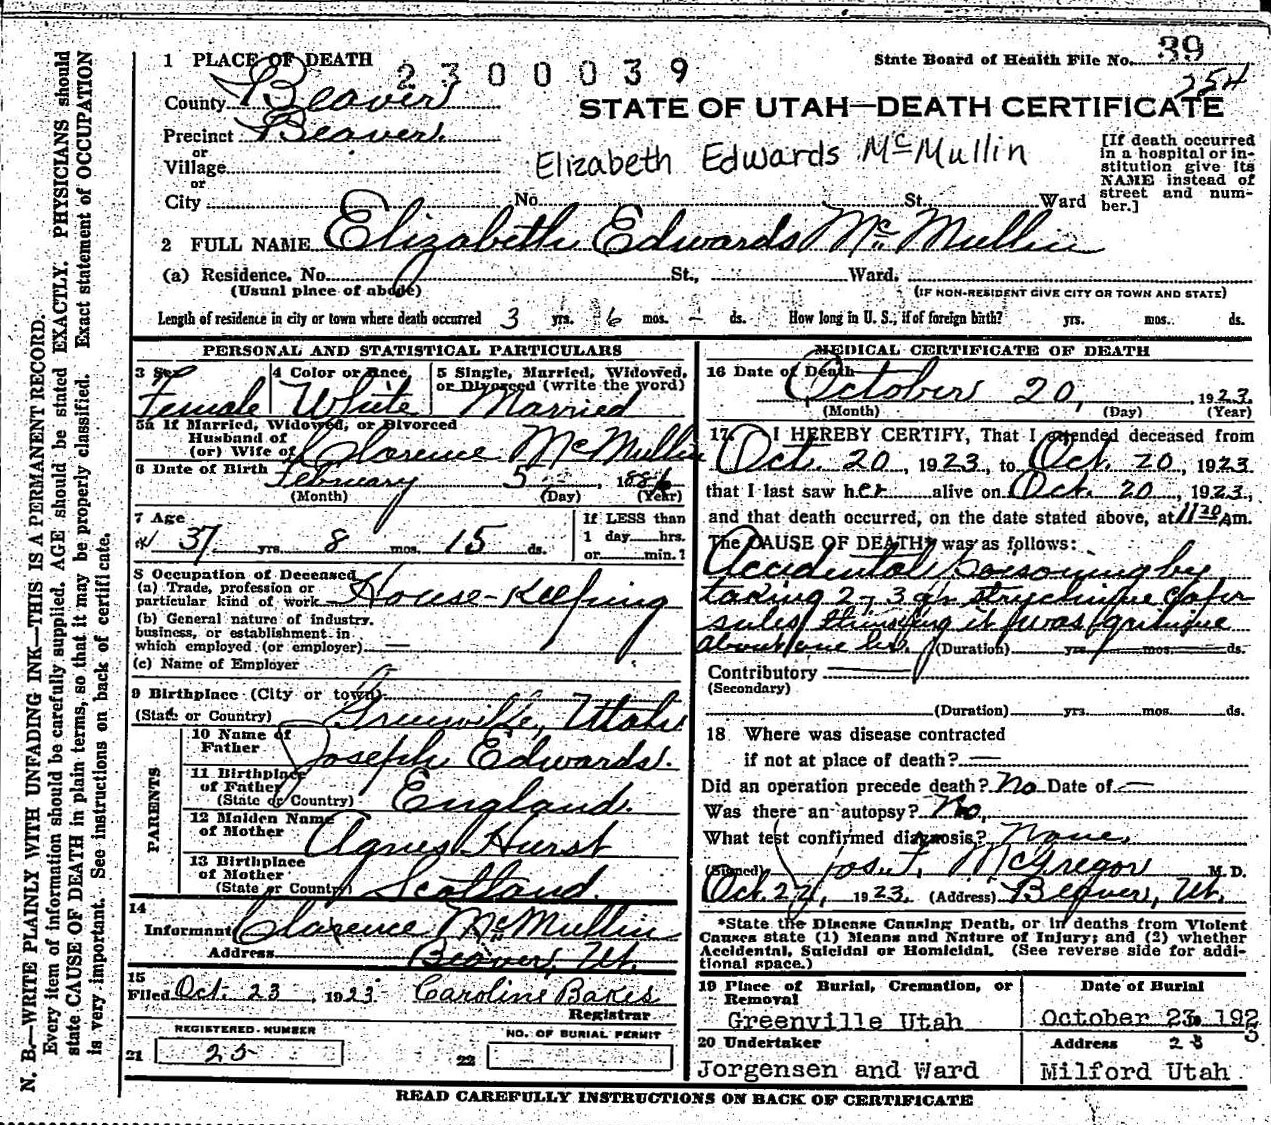 1 PLACE OF DEATH
2300039
State Board of Health File No. 39
254
County Beaver
STATE OF UTAH—DEATH CERTIFICATE
Precinct Beaver
or
Village
or
City No. St. Ward
Elizabeth Edwards McMullin
[If death occurred
in a hospital or in-
stitution give its
NAME instead of
street and num-
ber.]
2 FULL NAME Elizabeth Edwards McMullin
(a) Residence, No. St., Ward.
(Usual place of abode)
(IF NON-RESIDENT GIVE CITY OR TOWN AND STATE)
Length of residence in city or town where death occurred 3 yrs. 6 mos. - ds. How long in U. S., if of foreign birth? yrs. mos. ds.
PERSONAL AND STATISTICAL PARTICULARS
3 Sex
Female
4 Color or Race,
White
5 Single, Married, Widowed,
or Divorced (write the word)
Married
5a If Married, Widowed, or Divorced
Husband of
(or) Wife of Clarence McMullin
6 Date of Birth February 5 , 1886
(Month) (Day) (Year)
7 Age
37 yrs. 8 mos. 15 ds.
If LESS than
1 day hrs.
or min.?
8 Occupation of Deceased
(a) Trade, profession or
particular kind of work House-Keeping
(b) General nature of industry,
business, or establishment in
which employed (or employer)
(c) Name of Employer
9 Birthplace (City or town)
(State or Country) Greenville, Utah
PARENTS
10 Name of
Father Joseph Edwards.
11 Birthplace
of Father
(State or Country) England.
12 Maiden Name
of Mother Agnes Hurst
13 Birthplace
of Mother
(State or Country) Scotland.
14
Informant Clarence McMullin
Address Beaver, Ut.
15
Filed Oct. 23 , 1923 Caroline Bakes
Registrar
REGISTERED NUMBER
21 25
NO. OF BURIAL PERMIT
22
MEDICAL CERTIFICATE OF DEATH
16 Date of Death
October 20, 1923.
(Month) (Day) (Year)
17. I HEREBY CERTIFY, That I attended deceased from
Oct. 20 , 1923, to Oct. 20 , 1923
that I last saw her alive on Oct. 20 , 1923,
and that death occurred, on the date stated above, at 11 30 Am.
The CAUSE OF DEATH* was as follows:
Accidental Poisoning by
taking 2-3 grs strychnine
thinking it was
about one hr. (Duration) yrs. mos. ds.
Contributory
(Secondary)
(Duration) yrs. mos. ds.
18 Where was disease contracted
if not at place of death? —
Did an operation precede death? No Date of —
Was there an autopsy? No.
What test confirmed diagnosis? None.
(Signed) Jos. F. McGregor M. D.
Oct. 22, 1923. (Address) Beaver, Ut.
*State the Disease Causing Death, or in deaths from Violent
Causes state (1) Means and Nature of Injury; and (2) whether
Accidental, Suicidal or Homicidal. (See reverse side for addi-
tional space.)
19 Place of Burial, Cremation, or
Removal
Greenville Utah
Date of Burial
October 23, 192
3
20 Undertaker
Jorgensen and Ward
Address
Milford Utah
READ CAREFULLY INSTRUCTIONS ON BACK OF CERTIFICATE
N. B.—WRITE PLAINLY WITH UNFADING INK—THIS IS A PERMANENT RECORD.
Every item of information should be carefully supplied. AGE should be stated EXACTLY. PHYSICIANS should
state CAUSE OF DEATH in plain terms, so that it may be properly classified. Exact statement of OCCUPATION
is very important. See instructions on back of certificate.